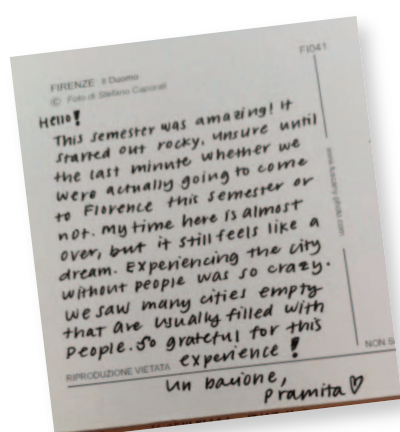 FI041
FIRENZE Il Duomo
© Foto di Stefano Caporali
Hello!
This semester was amazing! It
started out rocky, unsure until
the last minute whether we
were actually going to come
to Florence this semester or
not. My time here is almost
over, but it still feels like a
dream. Experiencing the city
without people was so crazy.
We saw many cities empty
that are usually filled with
people. So grateful for this
experience!
RIPRODUZIONE VIETATA
NON
un bacione,
Pramita♡